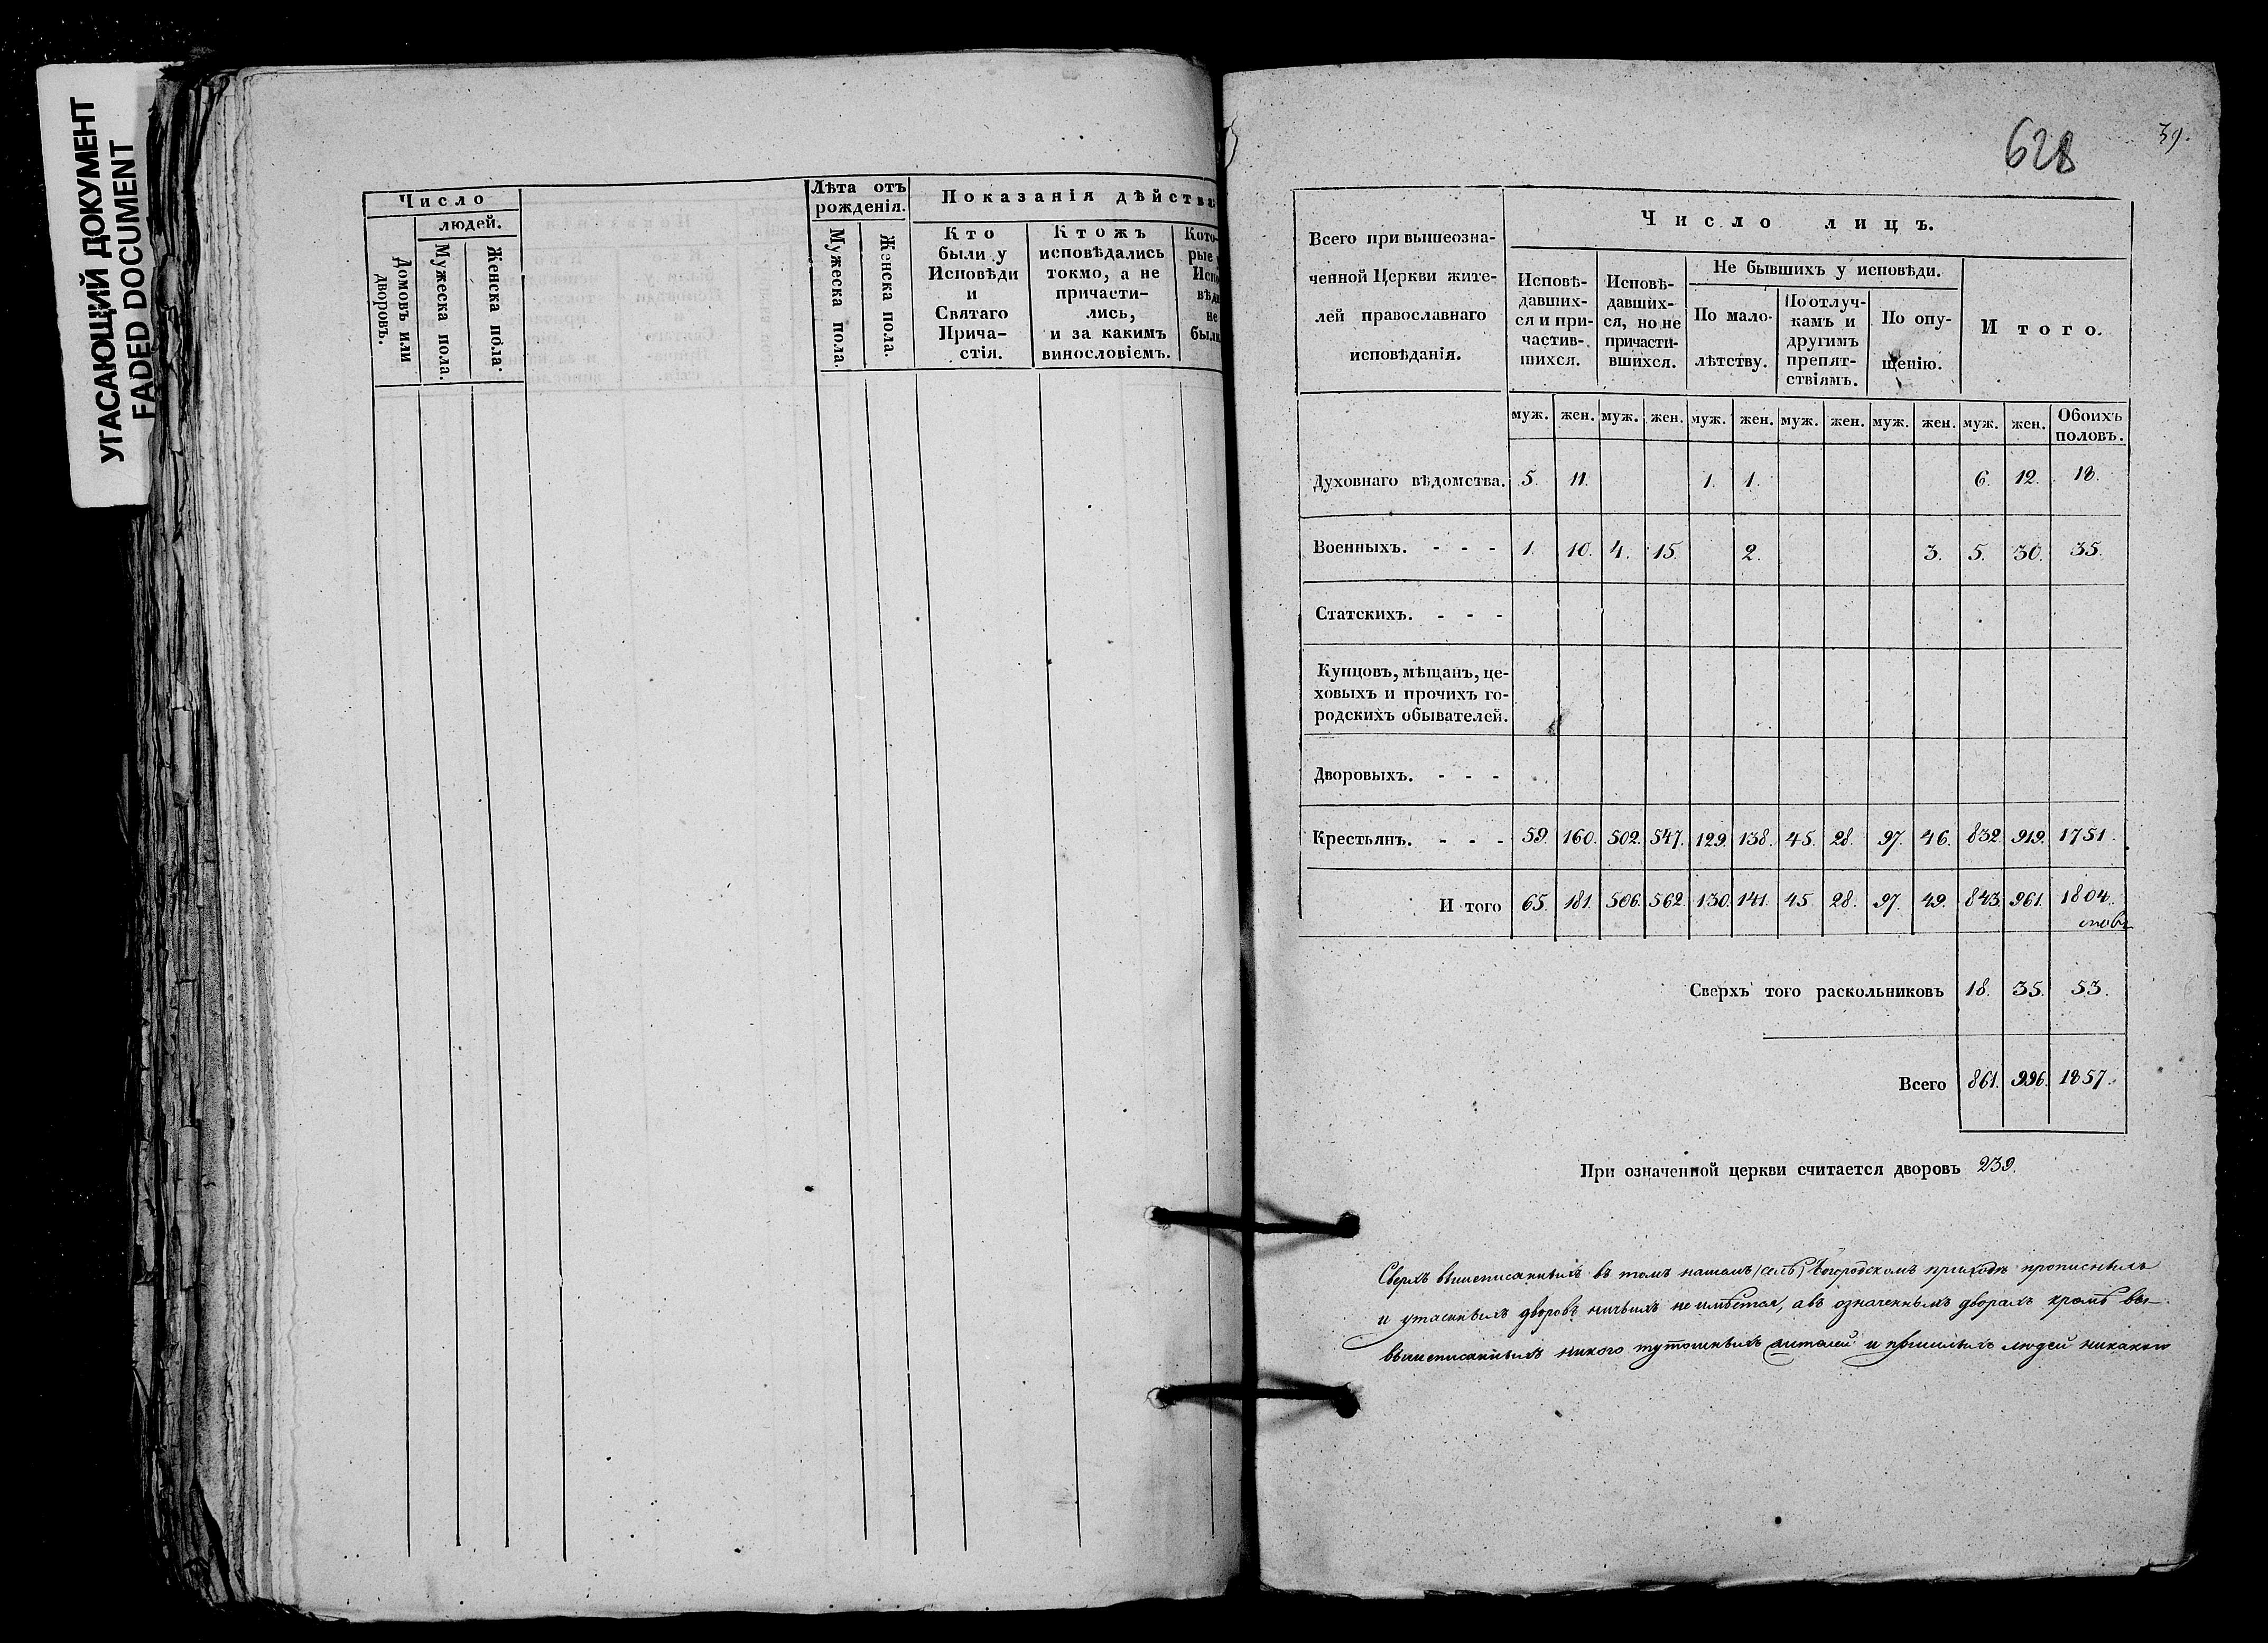 УГАСАЮЩИЙ ДОКУМЕНТ
FADED DOCUMENT
Число
людей.
Домовъ или дворовъ.
Мужеска пола.
Женска пола.
Лѣта отъ рожденія.
Мужеска пола.
Женска пола.
Показанія дѣйства
Кто были у Исповѣди и Святаго Прича-стія.
Ктожъ исповѣдались токмо, а не причасти-лись, и за какимъ винословіемъ.
Кото-рые Испо-вѣди не были
628
39.
Всего при вышеозна-
ченной Церкви жите-
лей православнаго
исповѣданія.
Число лицъ.
Исповѣ-давших-ся и при-частив-шихся.
Исповѣ-давших-ся, но не причасти-вшихся.
Не бывшихъ у исповѣди.
По мало-лѣтству.
По отлуч-камъ и другимъ препят-ствіямъ.
По опу-щенію.
Итого.
муж. жен. муж. жен. муж. жен. муж. жен. муж. жен. муж. жен. Обоихъ половъ.
Духовнаго вѣдомства. 5. 11. 1. 1. 6. 12. 18.
Военныхъ. - - - 1. 10. 4. 15. 2. 3. 5. 30. 35.
Статскихъ. - - -
Купцовъ, мѣщанъ, це-
ховыхъ и прочихъ го-
родскихъ обывателей.
Дворовыхъ. - - -
Крестьянъ. - - - 59. 160. 502. 547. 129. 138. 45. 28. 97. 46. 832. 919. 1751.
И того 65. 181. 506. 562. 130. 141. 45. 28. 97. 49. 843. 961. 1804.
Сверхъ того раскольниковъ 18. 35. 53.
Всего 861. 996. 1857.
При означенной церкви считается дворовъ 239.
Сверхъ вышеписанныхъ въ томъ нашемъ (селѣ) приходѣ прописныхъ
и утаенныхъ дворовъ ничьихъ не имѣется, а въ означенныхъ дворахъ кромѣ вы-
вышеписанныхъ никого тутошныхъ жителей и пришлыхъ людей никакихъ